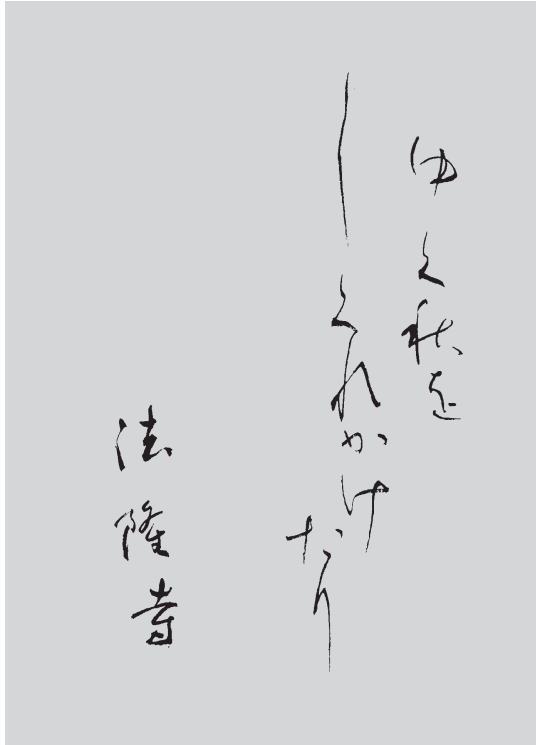 ゆく秋を
しくれかけたり
法隆寺